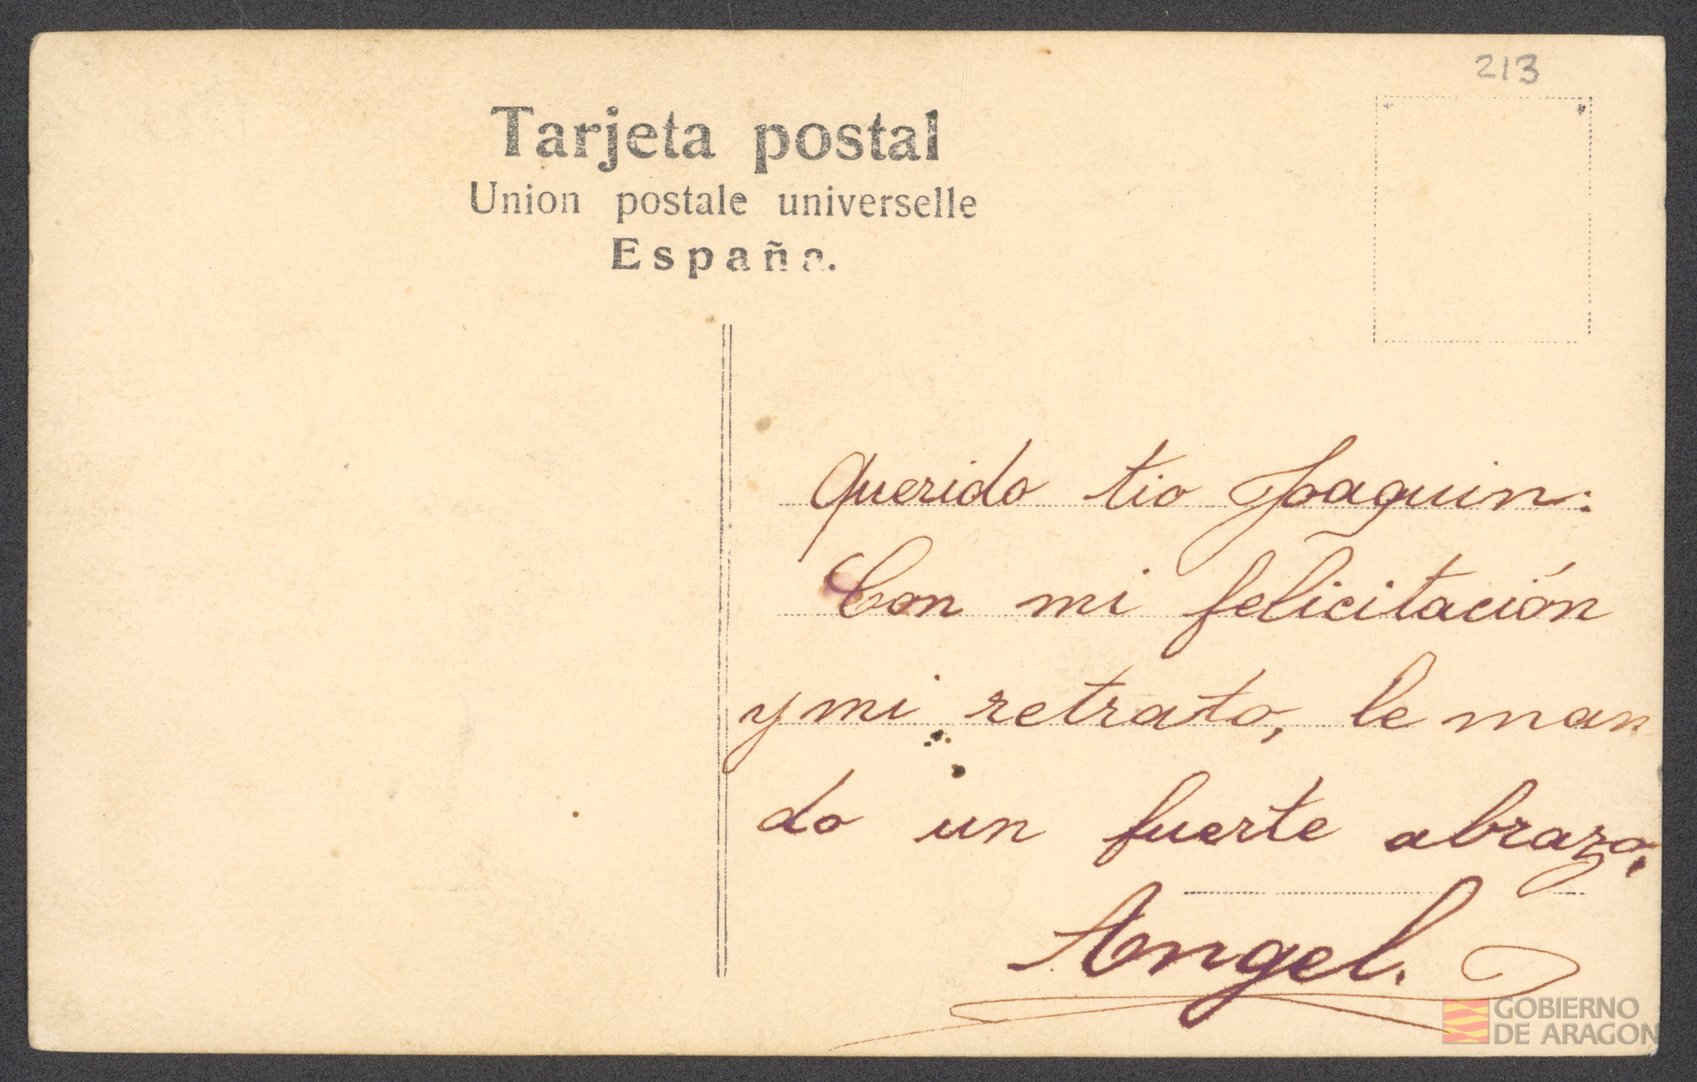 213
Tarjeta postal
Union postale universelle
España.
Querido tio Joaquin:
Con mi felicitación
y mi retrato, le man
do un fuerte abrazo.
Angel.
GOBIERNO
DE ARAGON